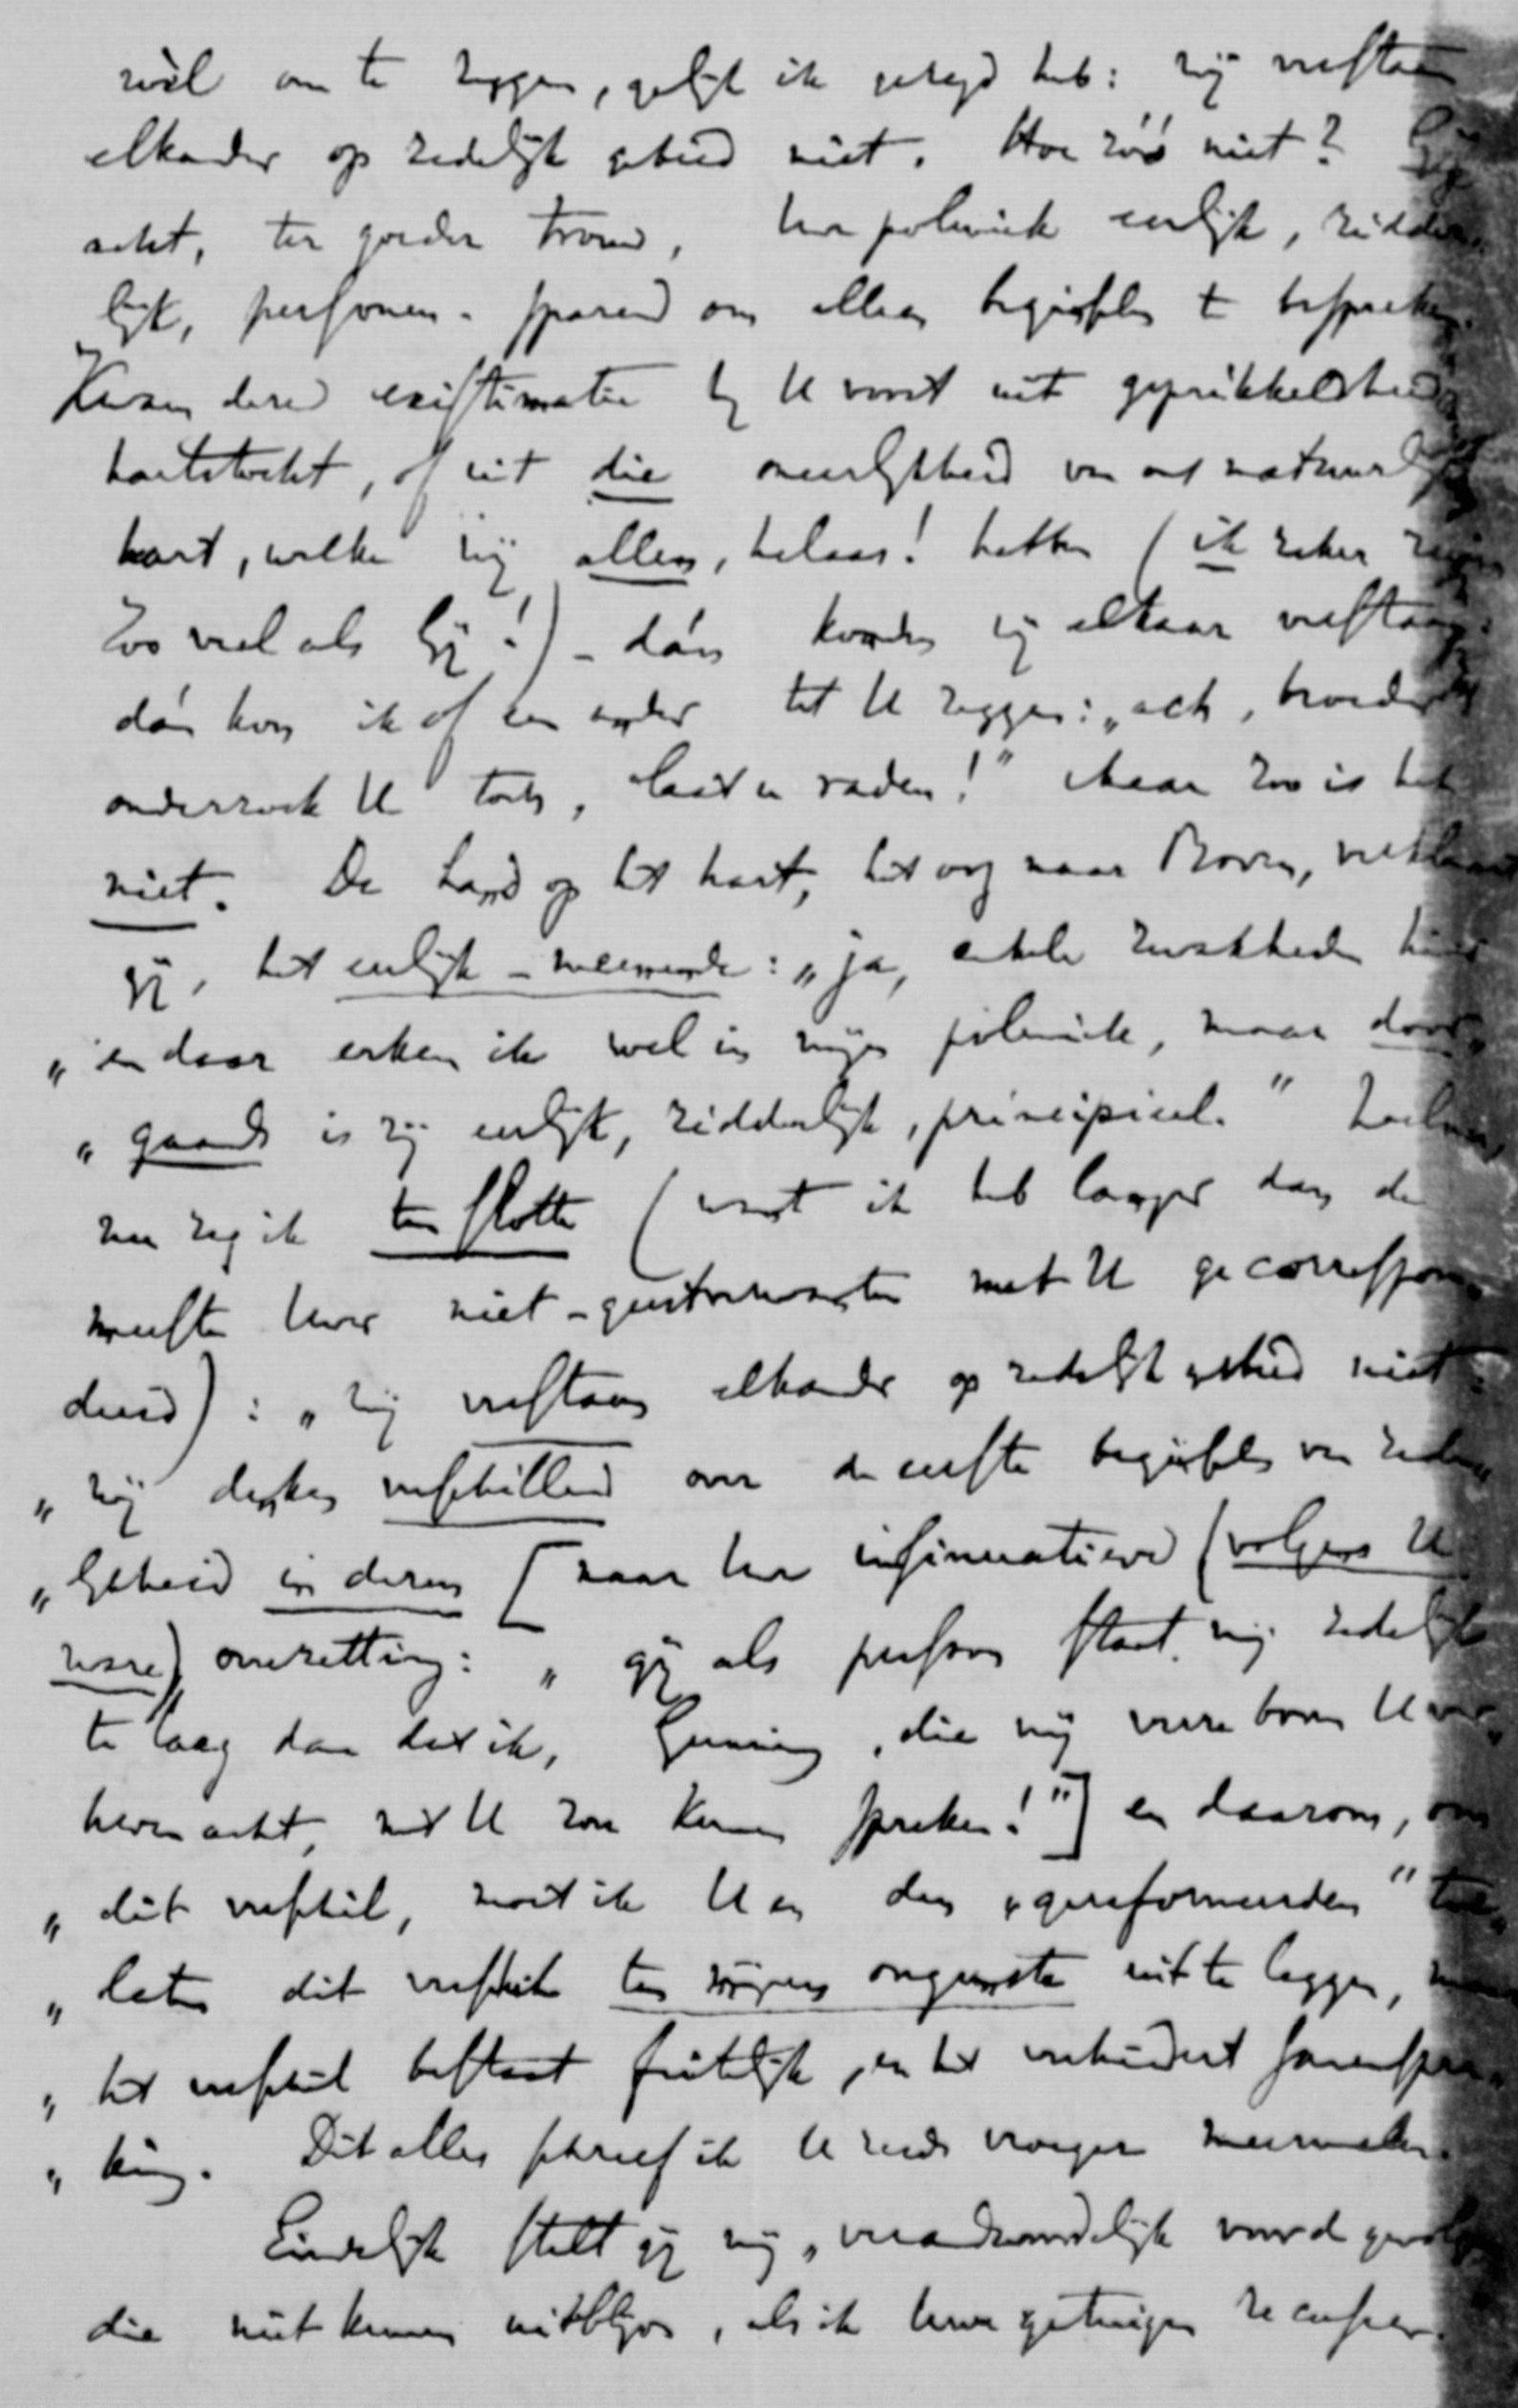 wèl om te zeggen, gelijk ik gezegd heb: wij verstaan
elkander op zedelijk gebied niet. Hoe zóó niet? Gij
acht, ter goeder trouw, Uw polemiek eerlijk, ridder-
lijk, personen-sparend om alleen beginselen te bespreken.
Kwam deze existimatie bij U voort uit geprikkeldheid,
hartstocht, of uit die oneerlijkheid van ons natuurlijk
hart, welke wij allen, helaas! hebben (ik zeker
zooveel als gij!) - dán konden wij elkaar verstaan:
dán kon ik of een ander tot U zeggen: „ach, broeder,
onderzoek U toch, laat u raden!" Maar zoo is het
niet. De hand op het hart, het oog naar Boven, verklaart
gij, het eerlijk-meenende: „ja, enkele zwakheden hier
„en daar erken ik wel in mijn polemiek, maar door-
„gaands is zij eerlijk, ridderlijk, principieel."
nu zeg ik ten slotte (want ik heb langer dan de
meeste Uwer niet-geestverwanten met U gecorrespon-
deerd): „wij verstaan elkander op zedelijk gebied niet:
„wij denken verschillend over de eerste beginselen van zede-
„lijkheid en daarom [naar Uw insinuatieve (volgens U
ware) overzetting: „gij als persoon staat mij zedelijk
te laag dan dat ik, Gunning, die mij verre boven U ver-
heven acht, met U zou kunnen spreken!"] en daarom, om
„dit verschil, moet ik U en den „gereformeerden" toe-
„laten dit verschil ten mijnen ongunste uit te leggen,
„het verschil bestaat feitelijk, en het verhindert samenspre-
„king. Dit alles schreef ik U reeds vroeger meermalen.
Eindelijk stelt gij mij „verantwoordelijk voor de gevolgen
die niet kunnen uitblijven, als ik Uwe getuigen